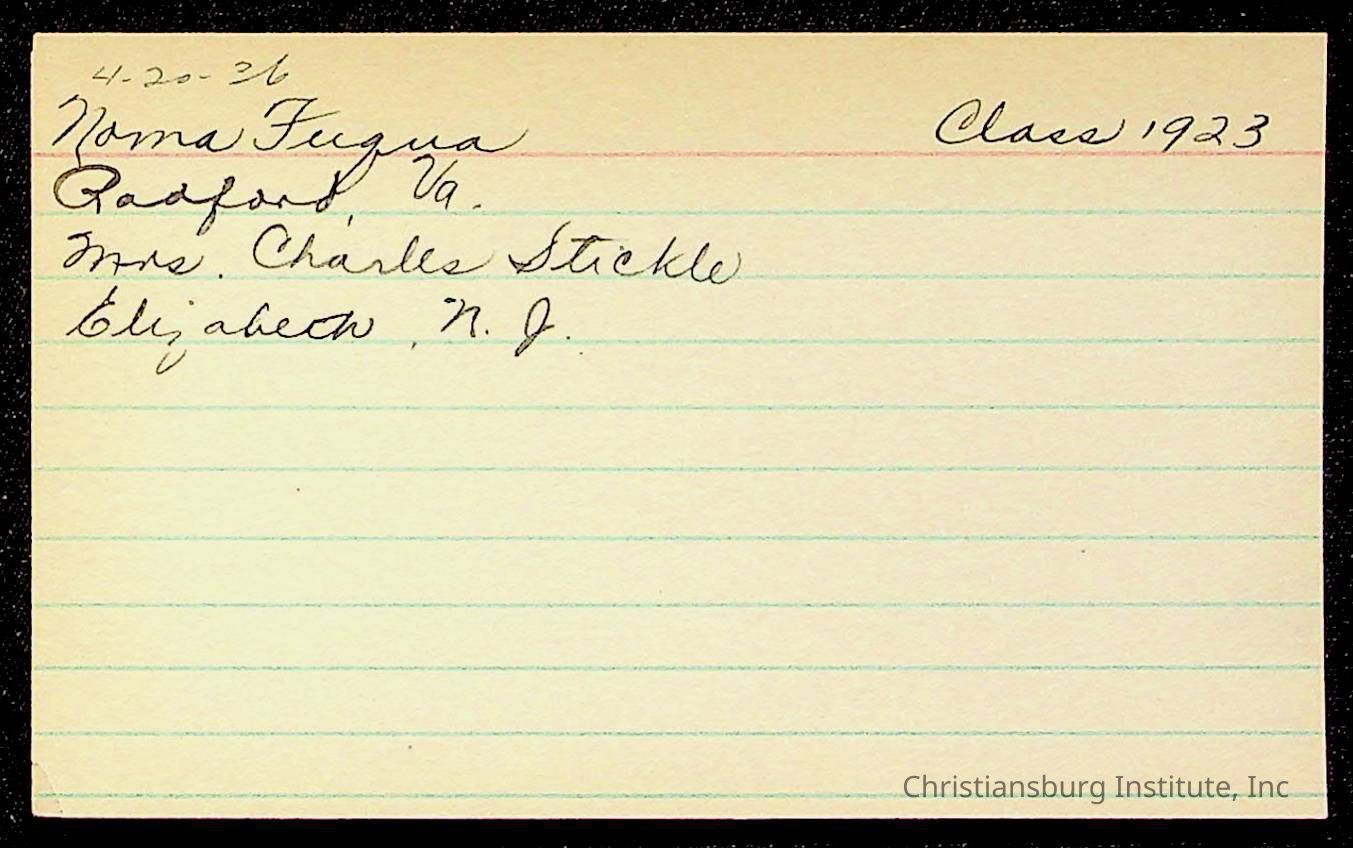 4-20-36
Noma Fuqua Class 1923
Radford, Va.
Mrs. Charles Stickle
Elizabeth, N. J.
Christiansburg Institute, Inc